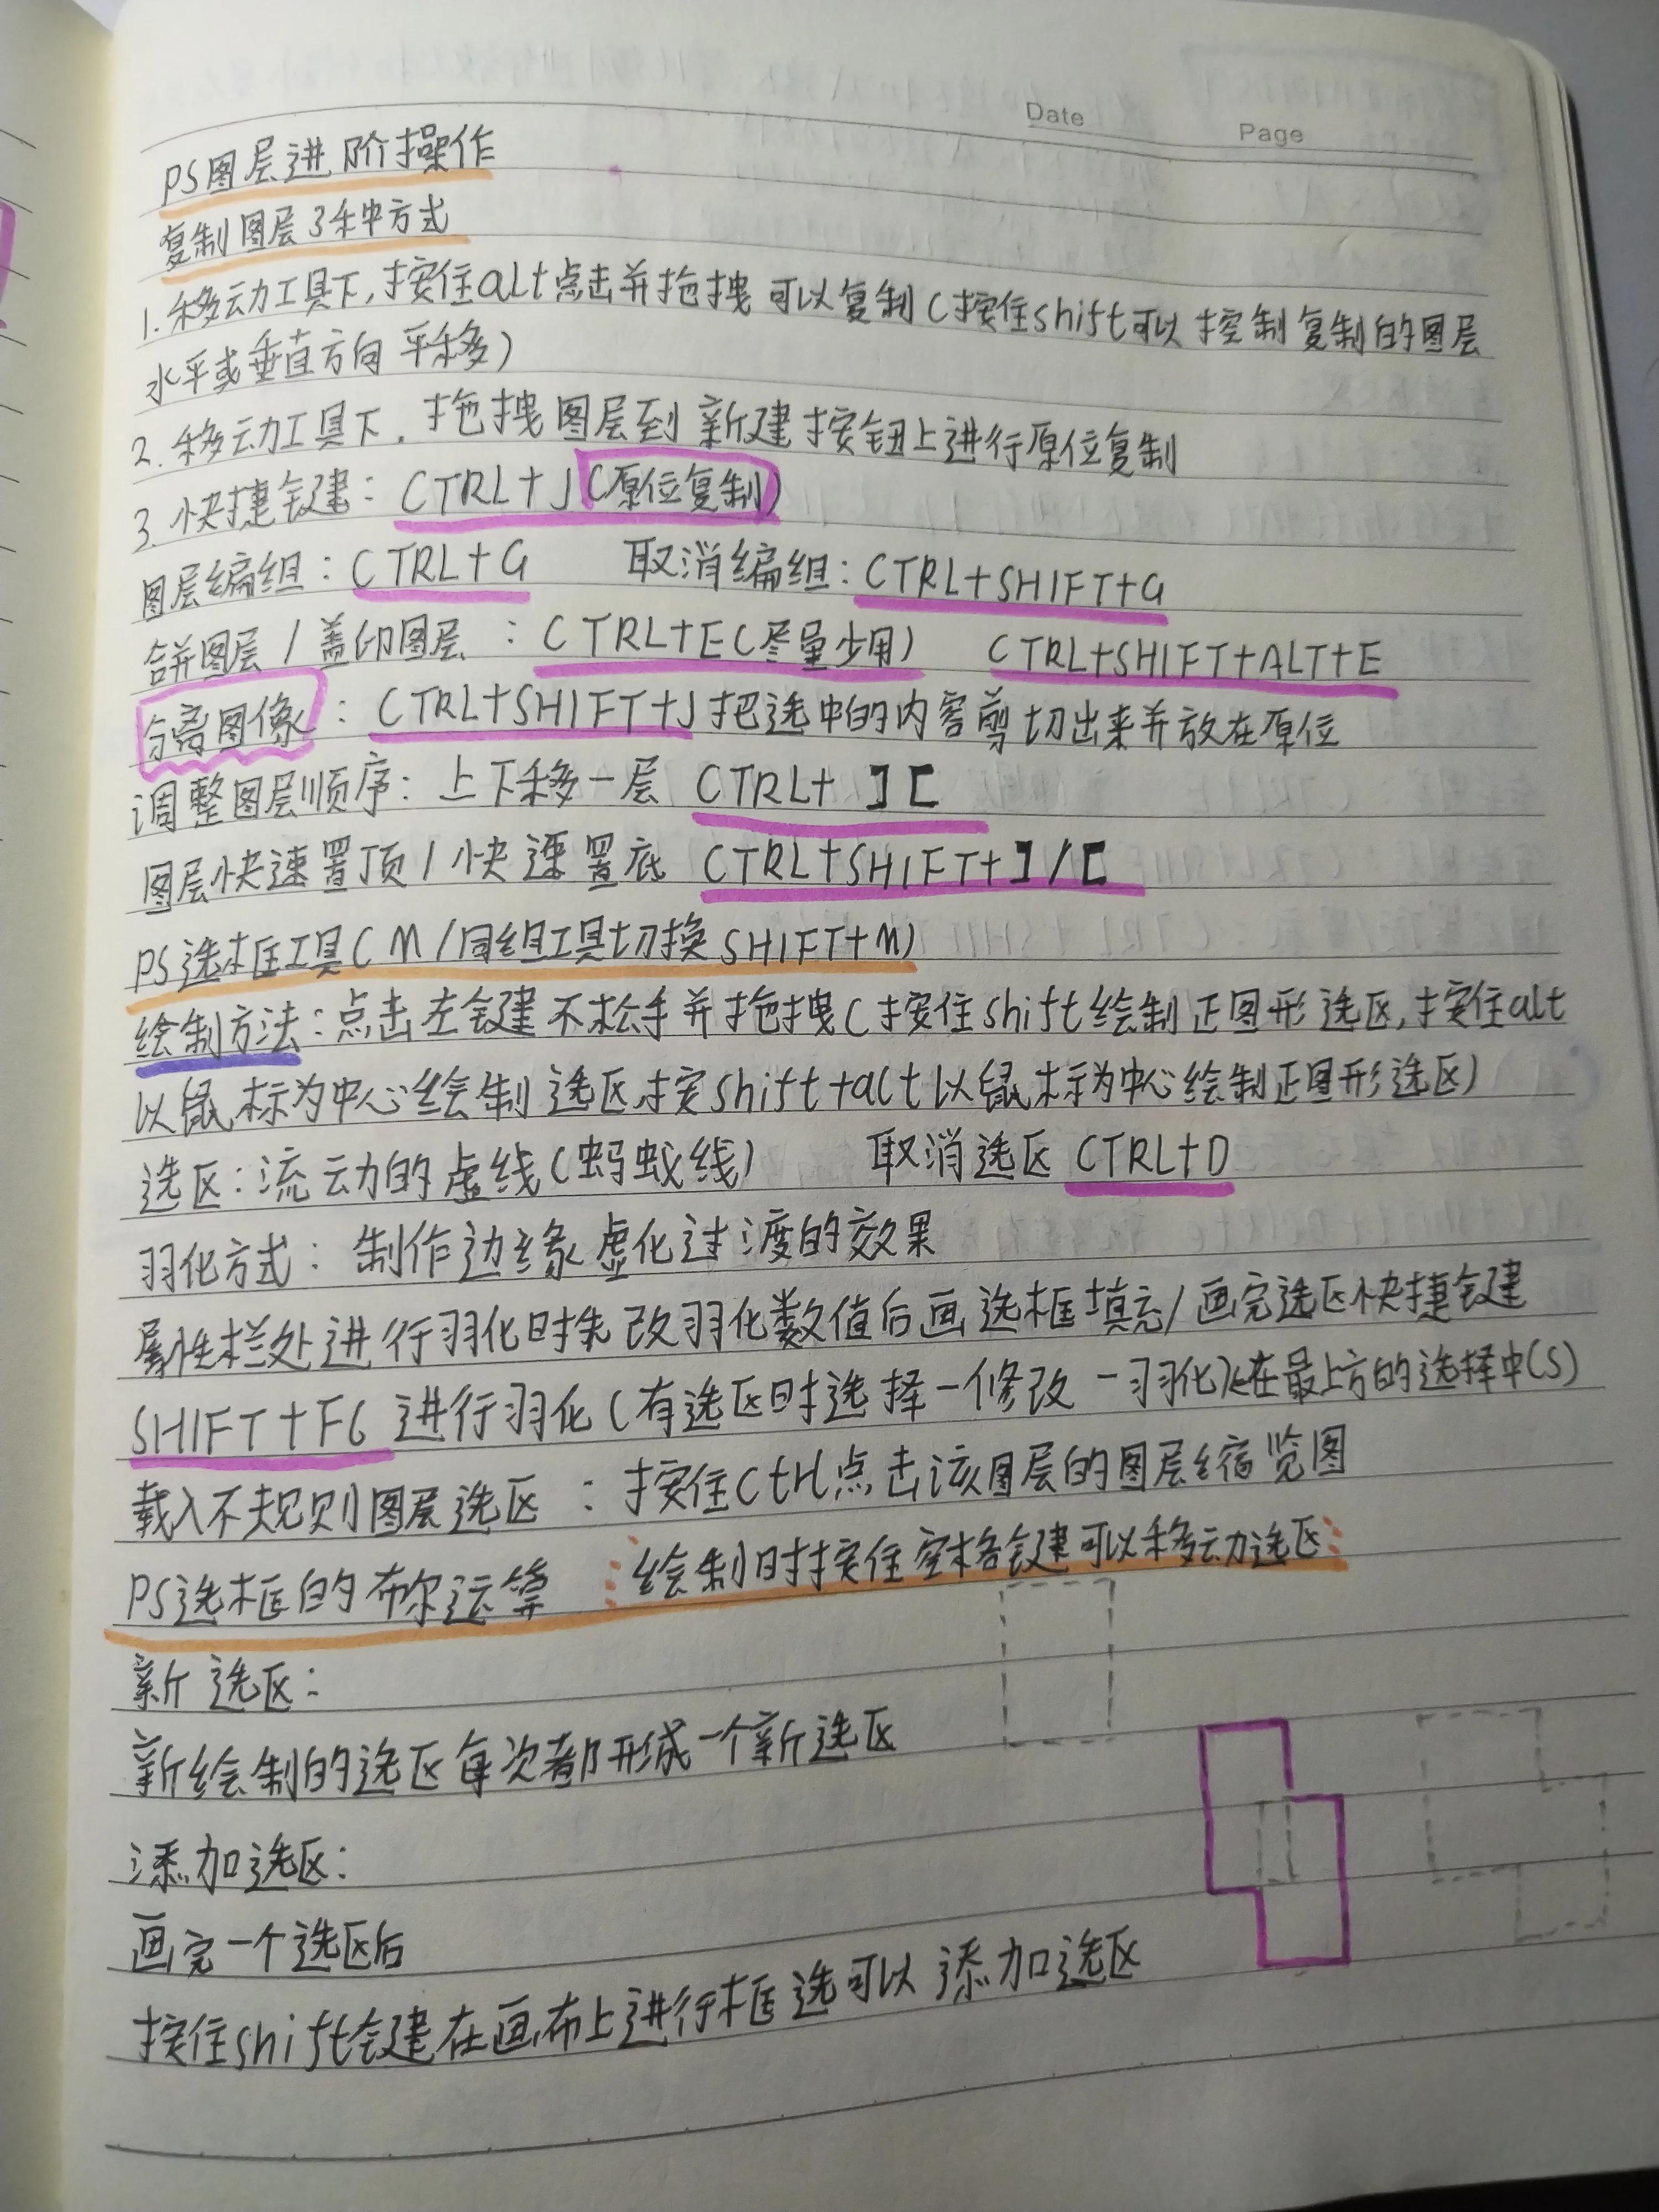 Date
Page
PS图层进阶操作
复制图层3种方式
1.移动工具下,按住alt点击并拖拽可以复制(按住shift可以控制复制的图层
水平或垂直方向平移)
2.移动工具下.拖拽图层到新建按钮上进行原位复制
3.快捷键:CTRL+J(原位复制)
图层编组:CTRL+G 取消编组:CTRL+SHIFT+G
合并图层/盖印图层:CTRL+E(尽量少用) CTRL+SHIFT+ALT+E
分离图像:CTRL+SHIFT+J把选中的内容剪切出来并放在原位
调整图层顺序:上下移一层 CTRL+ ][
图层快速置顶/快速置底 CTRL+SHIFT+]/[
PS选框工具(M/同组工具切换SHIFT+M)
绘制方法:点击左键不松手并拖拽(按住shift绘制正图形选区,按住alt
以鼠标为中心绘制选区,按shift+alt以鼠标为中心绘制正图形选区)
选区:流动的虚线(蚂蚁线) 取消选区 CTRL+D
羽化方式:制作边缘虚化过渡的效果
属性栏处进行羽化时先改羽化数值后画选框填充/画完选区快捷键
SHIFT+F6 进行羽化(有选区时选择-修改-羽化)在最上方的选择中(S)
载入不规则图层选区:按住Ctrl点击该图层的图层缩览图
PS选框的布尔运算 绘制时按住空格键可以移动选区
新选区:
新绘制的选区每次都形成一个新选区
添加选区:
画完一个选区后
按住shift键在画布上进行框选可以添加选区